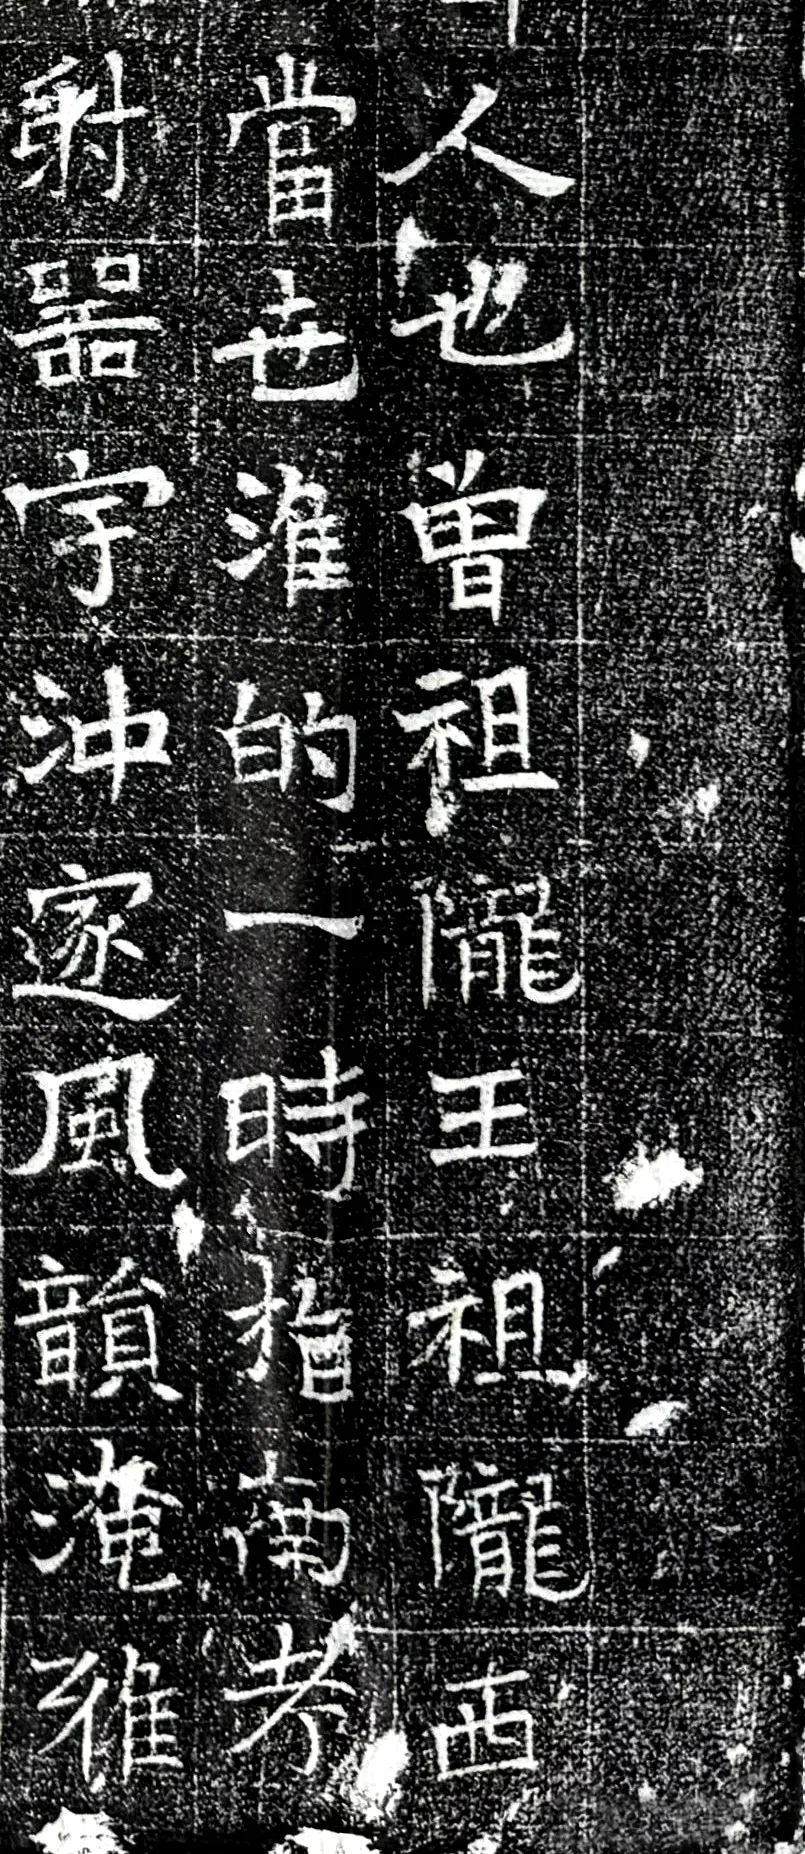 人也曽祖隴王祖隴西
當世准的一時指南考
射器宇沖邃風韻淹雅